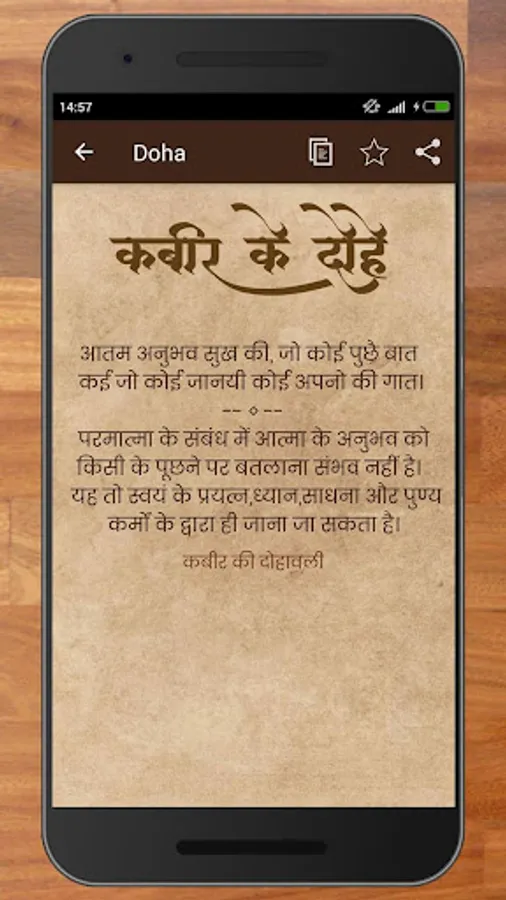 14:57
Doha
कबीर के दोहे
आतम अनुभव सुख की, जो कोई पुछै बात
कई जो कोई जानयी कोई अपनो की गात।
-- ⋄ --
परमात्मा के संबंध में आत्मा के अनुभव को
किसी के पूछने पर बतलाना संभव नहीं है।
यह तो स्वयं के प्रयत्न,ध्यान,साधना और पुण्य
कर्मों के द्वारा ही जाना जा सकता है।
कबीर की दोहावली